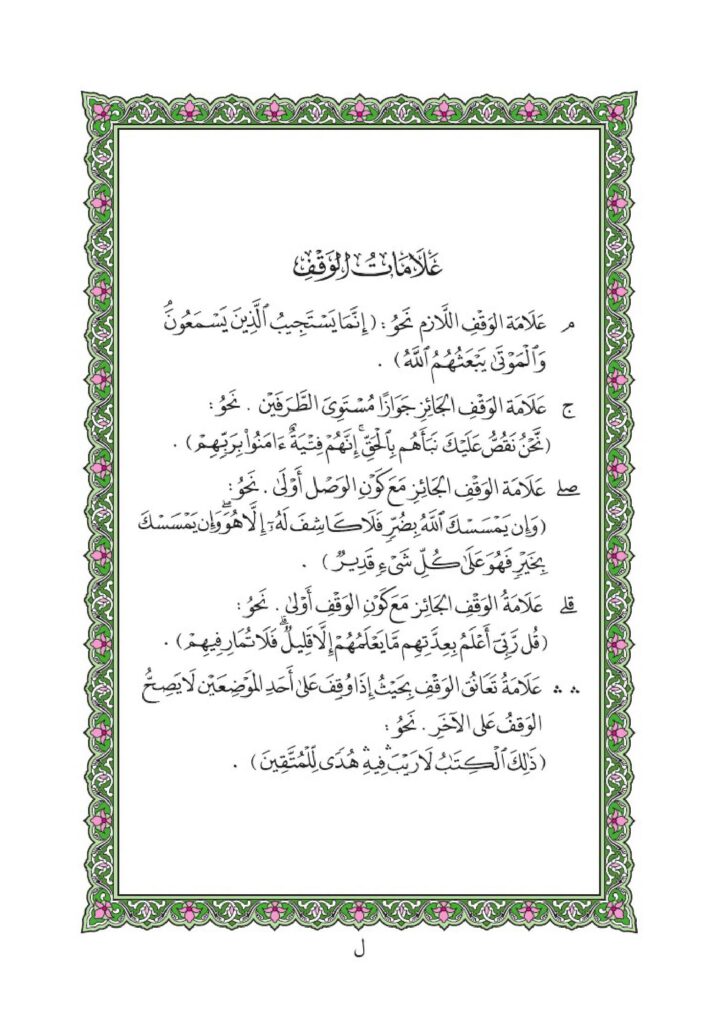 عَلَامَاتُ الوَقْفِ
مـ عَلَامَة الوَقْفِ اللَّازِم نَحْوُ : ( إِنَّمَا يَسْتَجِيبُ ٱلَّذِينَ يَسْمَعُونَۘ
وَٱلْمَوْتَىٰ يَبْعَثُهُمُ ٱللَّهُ ) .
ج عَلَامَة الوَقْفِ الجَائِزِ جَوَازًا مُسْتَوِيَ الطَّرَفَيْن . نَحْوُ :
( نَّحْنُ نَقُصُّ عَلَيْكَ نَبَأَهُم بِٱلْحَقِّۚ إِنَّهُمْ فِتْيَةٌ ءَامَنُواْ بِرَبِّهِمْ ) .
صلے عَلَامَة الوَقْفِ الجَائِزِ مَعَ كَوْنِ الوَصْل أَوْلَىٰ . نَحْوُ :
( وَإِن يَمْسَسْكَ ٱللَّهُ بِضُرٍّ فَلَا كَاشِفَ لَهُۥٓ إِلَّا هُوَۖ وَإِن يَمْسَسْكَ
بِخَيْرٍ فَهُوَ عَلَىٰ كُلِّ شَىْءٍ قَدِيرٌ ) .
قلے عَلَامَةُ الوَقْفِ الجَائِز مَعَ كَوْنِ الوَقْفِ أَوْلَىٰ . نَحْوُ :
( قُل رَّبِّىٓ أَعْلَمُ بِعِدَّتِهِم مَّا يَعْلَمُهُمْ إِلَّا قَلِيلٌۗ فَلَا تُمَارِ فِيهِمْ ) .
∴ ∴ عَلَامَةُ تَعَانُقِ الوَقْفِ بِحَيْثُ إِذَا وُقِفَ عَلَىٰ أَحَدِ المَوْضِعَيْن لَا يَصِحُّ
الوَقفُ عَلَى الآخَرِ . نَحْوُ :
( ذَٰلِكَ ٱلْكِتَٰبُ لَا رَيْبَۛ فِيهِۛ هُدًى لِّلْمُتَّقِينَ ) .
ل